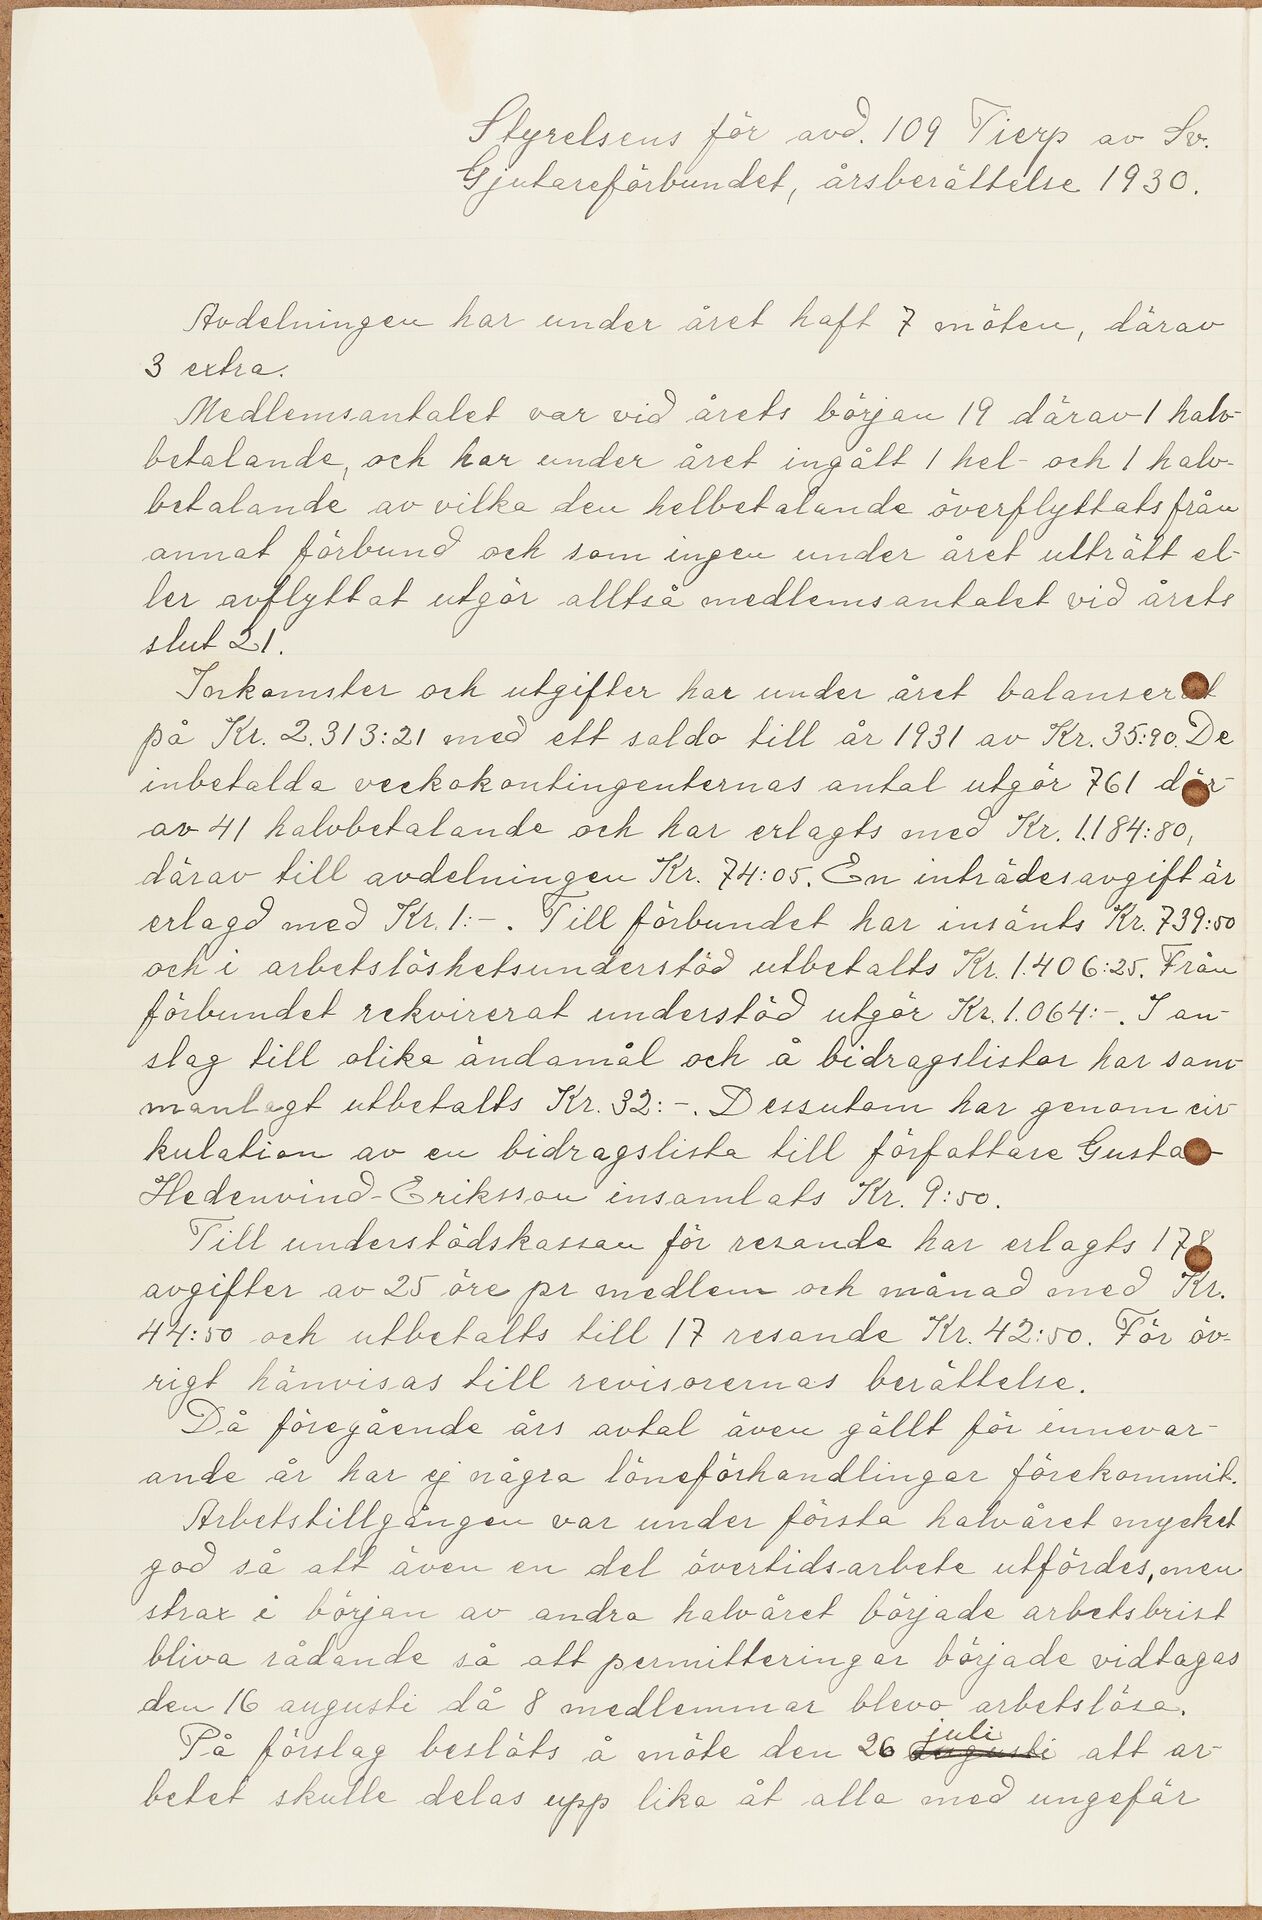 Styrelsens för avd. 109 Tierp av Sv.
Gjutareförbundet, årsberättelse 1930.
Avdelningen har under året haft 7 möten, därav
3 extra.
Medlemsantalet var vid årets början 19 därav 1 halv-
betalande, och har under året ingått 1 hel- och 1 halv-
betalande av vilka den helbetalande överflyttats från
annat förbund och som ingen under året utträtt el-
ler avflyttat utgör alltså medlemsantalet vid årets
slut 21.
Inkomster och utgifter har under året balanserat
på Kr. 2.313:21 med ett saldo till år 1931 av Kr. 35:90. De
inbetalda veckokontingenternas antal utgör 761 där-
av 41 halvbetalande och har erlagts med Kr. 1.184:80,
därav till avdelningen Kr. 74:05. En inträdesavgift är
erlagd med Kr. 1:-. Till förbundet har insänts Kr. 739:50
och i arbetslöshetsunderstöd utbetalts Kr. 1.406:25. Från
förbundet rekvirerat understöd utgör Kr. 1.064:-. I an-
slag till olika ändamål och å bidragslistor har sam-
manlagt utbetalts Kr. 32:-. Dessutom har genom cir-
kulation av en bidragslista till författare Gustav
Hedenvind-Eriksson insamlats Kr. 9:50.
Till understödskassan för resande har erlagts 178
avgifter av 25 öre pr medlem och månad med Kr.
44:50 och utbetalts till 17 resande Kr. 42:50. För öv-
rigt hänvisas till revisorernas berättelse.
Då föregående års avtal även gällt för innevar-
ande år har ej några löneförhandlingar förekommit.
Arbetstillgången var under första halvåret mycket
god så att även en del övertidsarbete utfördes, men
strax i början av andra halvåret började arbetsbrist
bliva rådande så att permitteringar började vidtagas
den 16 augusti då 8 medlemmar blevo arbetslösa.
juli
På förslag beslöts å möte den 26 augusti att ar-
betet skulle delas upp lika åt alla med ungefär